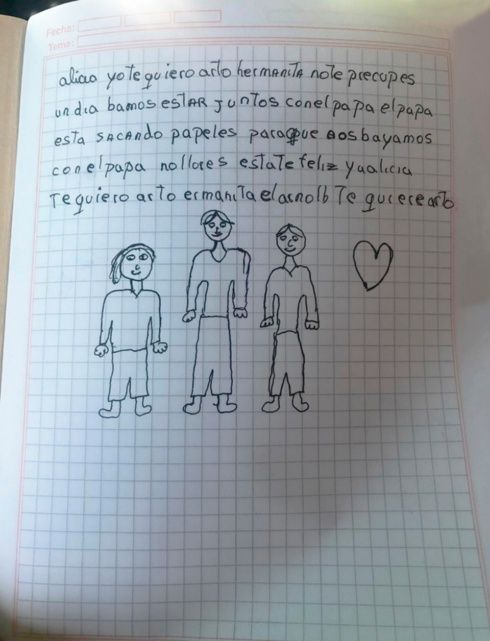 Fecha:
Tema:
aliaa yo te quiero arto hermanita no te precupes
un dia bamos estar juntos con el papa el papa
esta sacando papeles para que bosbayamos
con el papa no llores estate feliz ya alicia
Te quiero arto ermanita el arnolb Te qucere arto